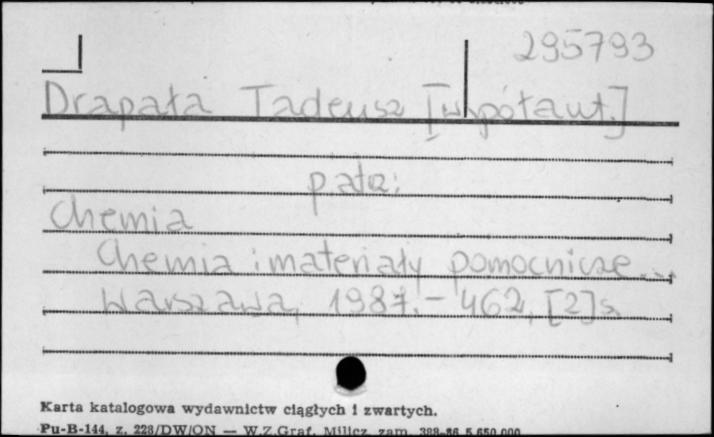 295793
Drapała Tadeusz [współaut.]
patrz:
Chemia
Chemia i materiały pomocnicze...
Warszawa, 1987. - 462, [2] s.
Karta katalogowa wydawnictw ciągłych i zwartych.
Pu-B-144, z. 228/DW/ON — W.Z.Graf. Milicz zam. 388-86 5.650.000